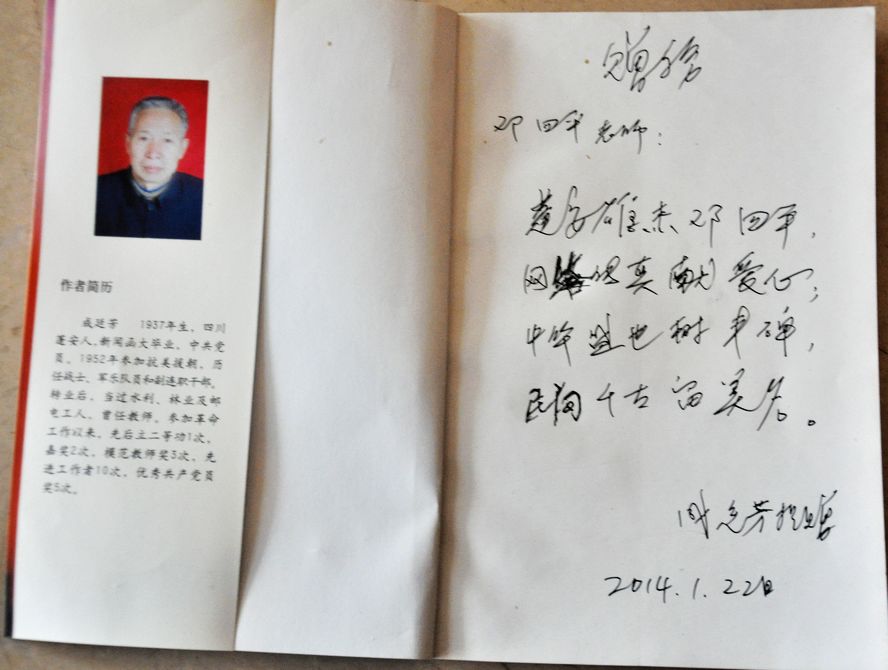 作者简历
成廷芳 1937年生，四川
蓬安人，新闻函大毕业，中共党
员。1952年参加抗美援朝，历
任战士、军乐队员和副连职干部。
转业后，当过水利、林业及邮
电工人，曾任教师。参加革命
工作以来，先后立二等功1次，
嘉奖2次，模范教师奖3次，先
进工作者10次，优秀共产党员
奖5次。
赠给
邓四平老师：
雄杰邓四平，
网 真献爱心；
树丰碑，
民间千古留美名。
2014.1.22日